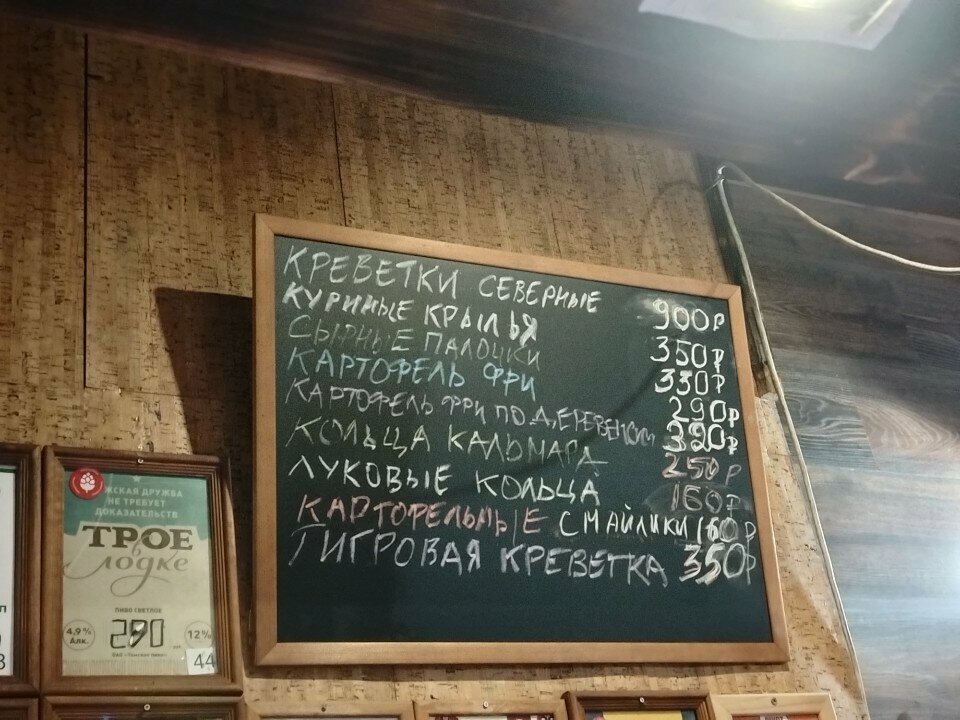 КРЕВЕТКИ СЕВЕРНЫЕ 900₽
КУРИНЫЕ КРЫЛЬЯ 350₽
СЫРНЫЕ ПАЛОЧКИ 330₽
КАРТОФЕЛЬ ФРИ 290₽
КАРТОФЕЛЬ ФРИ ПО ДЕРЕВЕНСКИ 320₽
КОЛЬЦА КАЛЬМАРА 250₽
ЛУКОВЫЕ КОЛЬЦА 160₽
КАРТОФЕЛЬНЫЕ СМАЙЛИКИ 160₽
ТИГРОВАЯ КРЕВЕТКА 350₽
ЖСКАЯ ДРУЖБА
НЕ ТРЕБУЕТ
ДОКАЗАТЕЛЬСТВ
ТРОЕ
в лодке
ПИВО СВЕТЛОЕ
4,9% Алк. 290 12%
ОАО «Томское пиво»
44